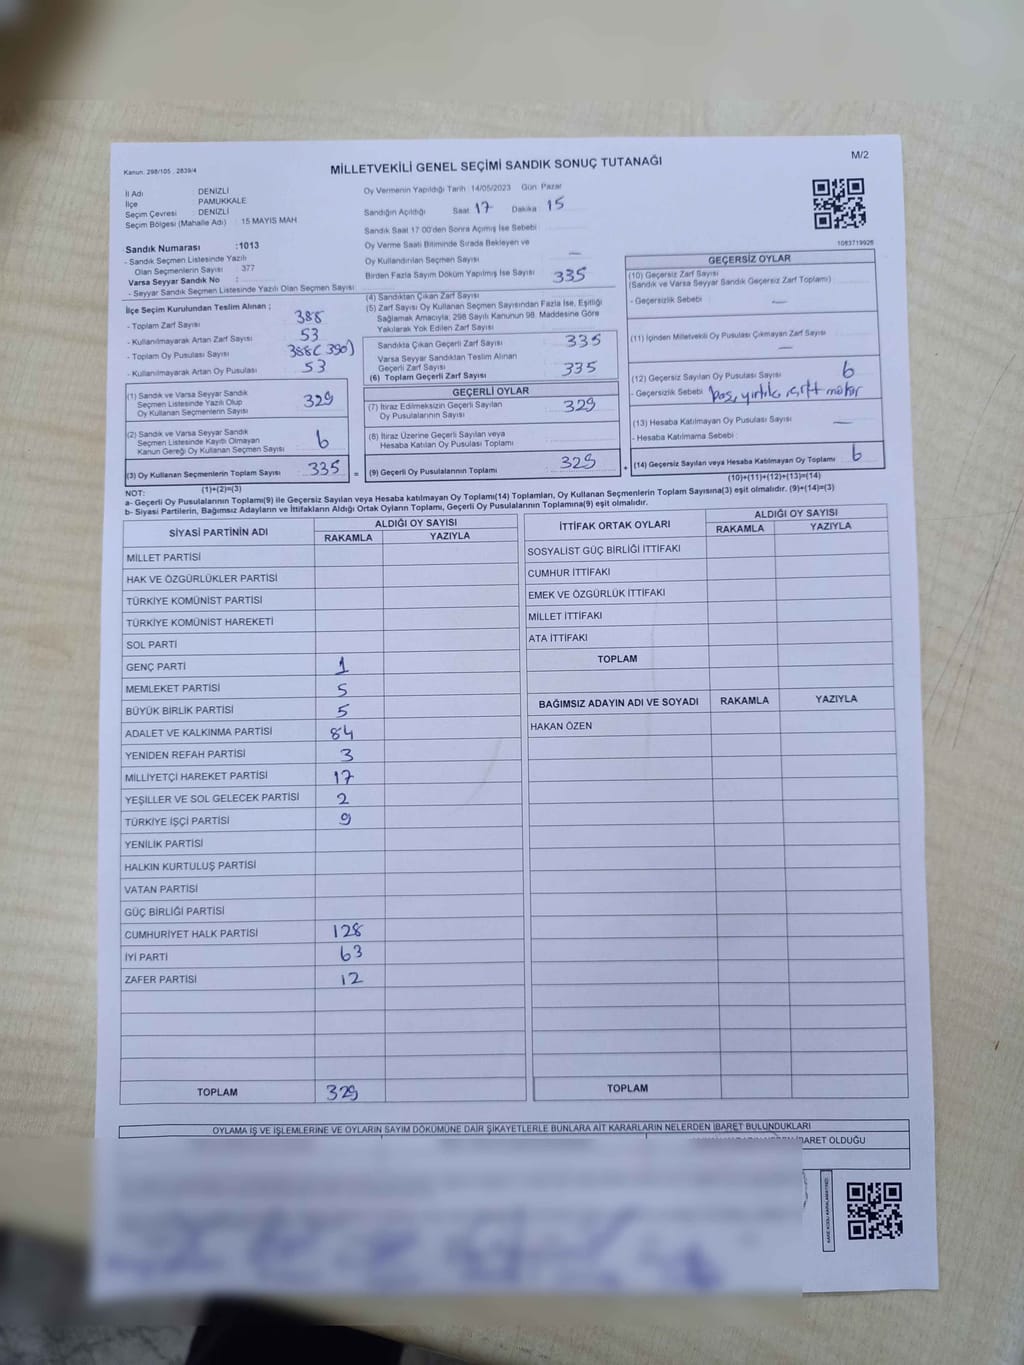 Kanun. 298/105 , 2839/4
MİLLETVEKİLİ GENEL SEÇİMİ SANDIK SONUÇ TUTANAĞI
M/2
İl Adı : DENİZLİ
İlçe : PAMUKKALE
Seçim Çevresi : DENİZLİ
Seçim Bölgesi (Mahalle Adı) : 15 MAYIS MAH
Sandık Numarası :1013
- Sandık Seçmen Listesinde Yazılı
Olan Seçmenlerin Sayısı : 377
Varsa Seyyar Sandık No :
- Seyyar Sandık Seçmen Listesinde Yazılı Olan Seçmen Sayısı:
Oy Vermenin Yapıldığı Tarih :14/05/2023 Gün Pazar
Sandığın Açıldığı Saat 17 Dakika : 15
Sandık Saat 17.00'den Sonra Açımış İse Sebebi
Oy Verme Saati Bitiminde Sırada Bekleyen ve
Oy Kullandırılan Seçmen Sayısı —
Birden Fazla Sayım Döküm Yapılmış İse Sayısı 335
1083719926
İlçe Seçim Kurulundan Teslim Alınan ;
- Toplam Zarf Sayısı 388
- Kullanılmayarak Artan Zarf Sayısı 53
- Toplam Oy Pusulası Sayısı 388(390)
- Kullanılmayarak Artan Oy Pusulası 53
(1) Sandık ve Varsa Seyyar Sandık
Seçmen Listesinde Yazılı Olup
Oy Kullanan Seçmenlerin Sayısı 329
(2) Sandık ve Varsa Seyyar Sandık
Seçmen Listesinde Kayıtlı Olmayan
Kanun Gereği Oy Kullanan Seçmen Sayısı 6
(3) Oy Kullanan Seçmenlerin Toplam Sayısı 335
(1)+(2)=(3)
(4) Sandıktan Çıkan Zarf Sayısı
(5) Zarf Sayısı Oy Kullanan Seçmen Sayısından Fazla İse, Eşitliği
Sağlamak Amacıyla, 298 Sayılı Kanunun 98. Maddesine Göre
Yakılarak Yok Edilen Zarf Sayısı
Sandıkta Çıkan Geçerli Zarf Sayısı 335
Varsa Seyyar Sandıktan Teslim Alınan
Geçerli Zarf Sayısı
(6) Toplam Geçerli Zarf Sayısı 335
GEÇERLİ OYLAR
(7) İtiraz Edilmeksizin Geçerli Sayılan
Oy Pusulalarının Sayısı 329
(8) İtiraz Üzerine Geçerli Sayılan veya
Hesaba Katılan Oy Pusulası Toplamı
= (9) Geçerli Oy Pusulalarının Toplamı 329
GEÇERSİZ OYLAR
(10) Geçersiz Zarf Sayısı
(Sandık ve Varsa Seyyar Sandık Geçersiz Zarf Toplamı)
- Geçersizlik Sebebi : —
(11) İçinden Milletvekili Oy Pusulası Çıkmayan Zarf Sayısı
—
(12) Geçersiz Sayılan Oy Pusulası Sayısı 6
- Geçersizlik Sebebi : boş, yırtık, çift mühür
(13) Hesaba Katılmayan Oy Pusulası Sayısı —
- Hesaba Katılmama Sebebi :
+ (14) Geçersiz Sayılan veya Hesaba Katılmayan Oy Toplamı 6
(10)+(11)+(12)+(13)=(14)
NOT:
a- Geçerli Oy Pusulalarının Toplamı(9) ile Geçersiz Sayılan veya Hesaba katılmayan Oy Toplamı(14) Toplamları, Oy Kullanan Seçmenlerin Toplam Sayısına(3) eşit olmalıdır. (9)+(14)=(3)
b- Siyasi Partilerin, Bağımsız Adayların ve İttifakların Aldığı Oyların Toplamı, Geçerli Oy Pusulalarının Toplamına(9) eşit olmalıdır.
SİYASİ PARTİNİN ADI ALDIĞI OY SAYISI
RAKAMLA YAZIYLA
MİLLET PARTİSİ
HAK VE ÖZGÜRLÜKLER PARTİSİ
TÜRKİYE KOMÜNİST PARTİSİ
TÜRKİYE KOMÜNİST HAREKETİ
SOL PARTİ
GENÇ PARTİ 1
MEMLEKET PARTİSİ 5
BÜYÜK BİRLİK PARTİSİ 5
ADALET VE KALKINMA PARTİSİ 84
YENİDEN REFAH PARTİSİ 3
MİLLİYETÇİ HAREKET PARTİSİ 17
YEŞİLLER VE SOL GELECEK PARTİSİ 2
TÜRKİYE İŞÇİ PARTİSİ 9
YENİLİK PARTİSİ
HALKIN KURTULUŞ PARTİSİ
VATAN PARTİSİ
GÜÇ BİRLİĞİ PARTİSİ
CUMHURİYET HALK PARTİSİ 128
İYİ PARTİ 63
ZAFER PARTİSİ 12
TOPLAM 329
İTTİFAK ORTAK OYLARI ALDIĞI OY SAYISI
RAKAMLA YAZIYLA
SOSYALİST GÜÇ BİRLİĞİ İTTİFAKI
CUMHUR İTTİFAKI
EMEK VE ÖZGÜRLÜK İTTİFAKI
MİLLET İTTİFAKI
ATA İTTİFAKI
TOPLAM
BAĞIMSIZ ADAYIN ADI VE SOYADI RAKAMLA YAZIYLA
HAKAN ÖZEN
TOPLAM
OYLAMA İŞ VE İŞLEMLERİNE VE OYLARIN SAYIM DÖKÜMÜNE DAİR ŞİKAYETLERLE BUNLARA AİT KARARLARIN NELERDEN İBARET BULUNDUKLARI
İBARET OLDUĞU